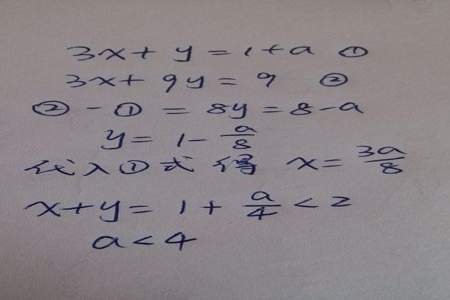 3x+y=1+a ①
3x+9y=9 ②
②-①=8y=8-a
y=1-a/8
代入①式得 x=3a/8
x+y=1+a/4<2
a<4